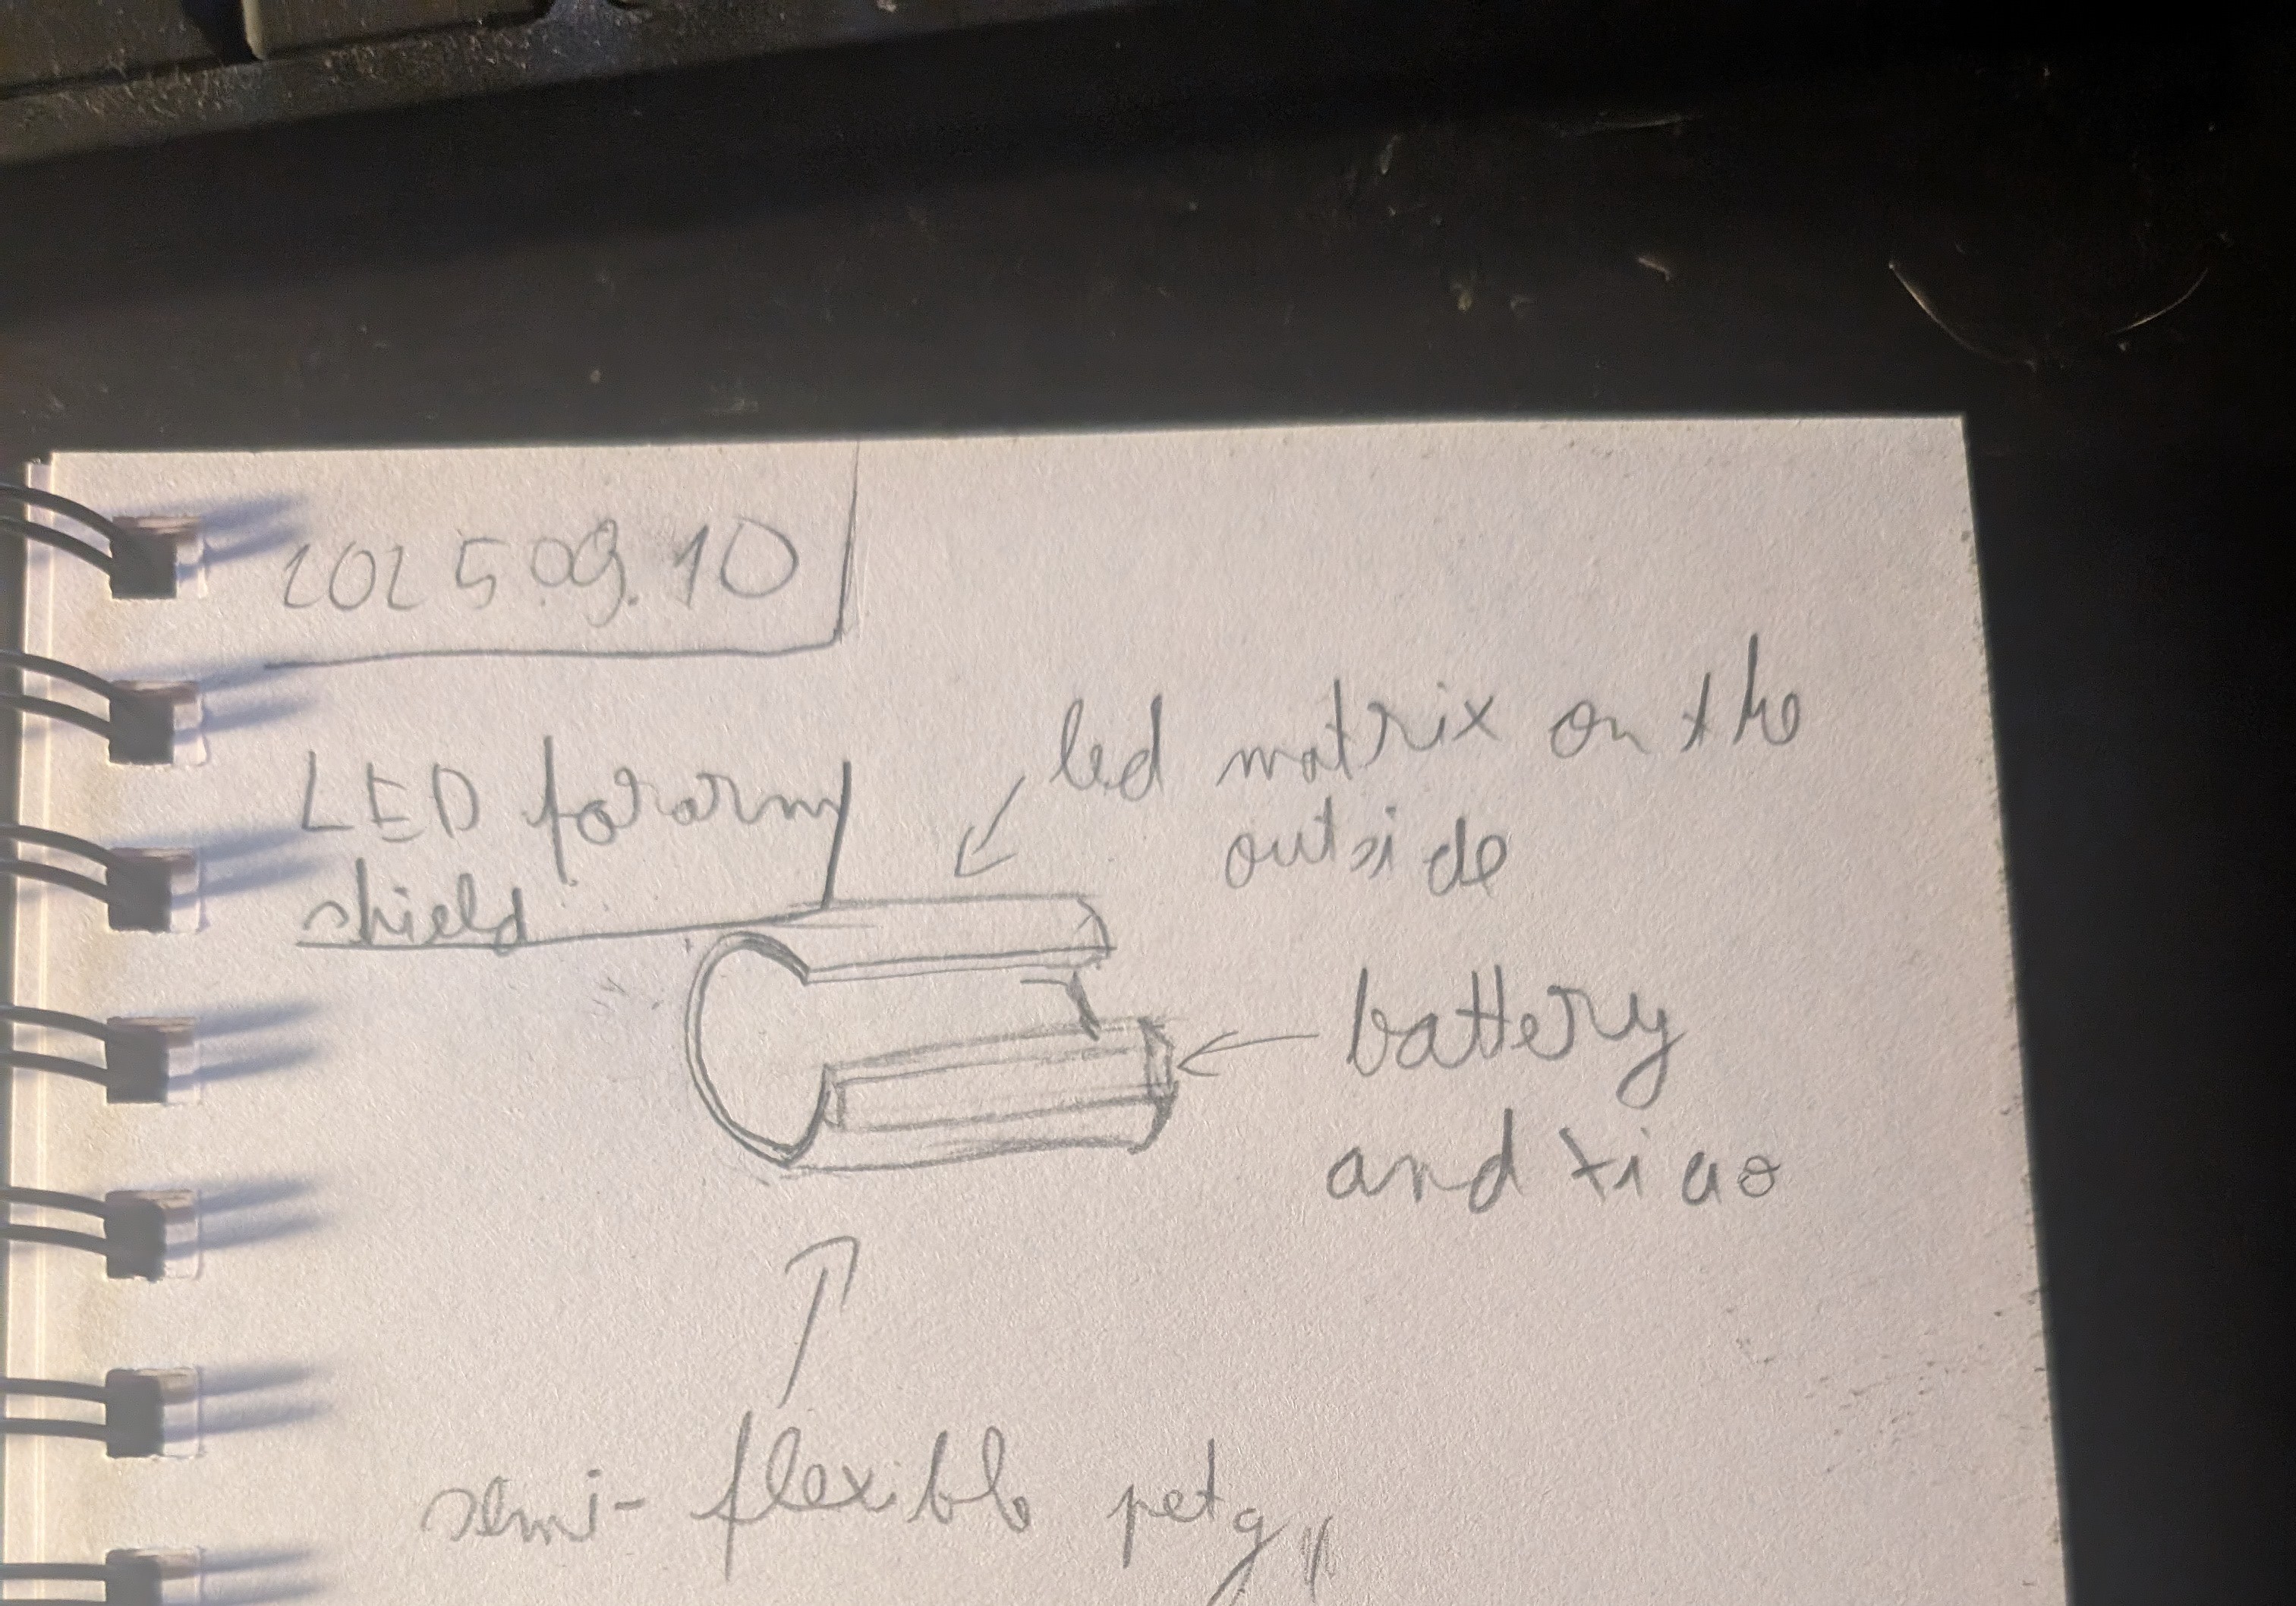 2025.09.10
LED forarm
shield
led matrix on the
outside
battery
and xiao
semi-flexible petg